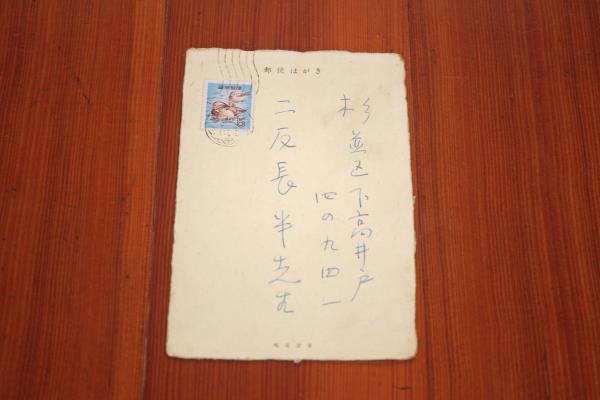 郵便はがき
杉並区下高井戸
四の九四一
二反長半先生